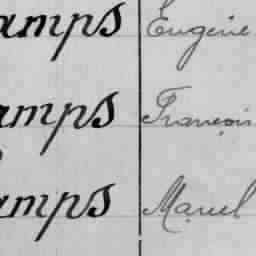 amps Eugène
amps François
amps Marcel